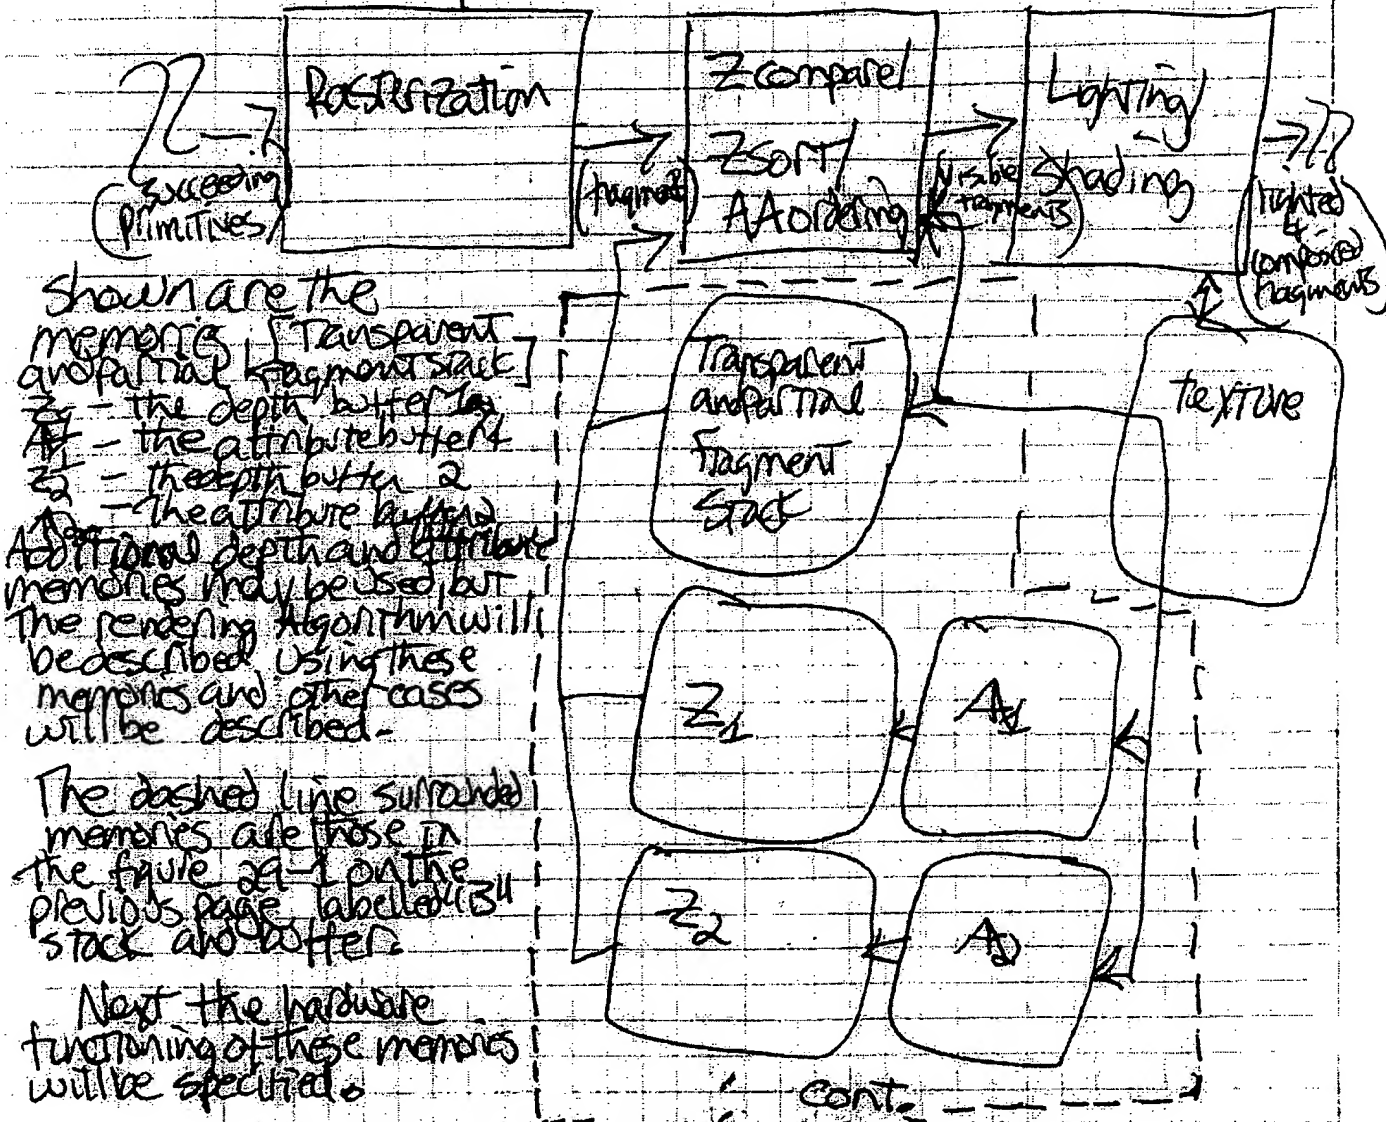 Rasterization
Zcompare/
Zsort/
AAordering
Lighting/
Shading
(succeeding
primitives)
(fragments)
(visible
fragments)
(lighted
&
composed
fragments)
Shown are the
memories, [Transparent
and Partial Fragment Stack]
Z1 - the depth buffer 1
A1 - the attribute buffer 1
Z2 - the depth buffer 2
A2 - the attribute buffer 2
Additional depth and attribute
memories may be used, but
the rendering Algorithm will
be described using these
memories and other cases
will be described.
The dashed line surrounded
memories are those in
the figure 29-1 on the
previous page, labelled "B"
stack and buffer.
Next the hardware
functioning of these memories
will be specified.
Transparent
and Partial
Fragment
Stack
texture
Z1
A1
Z2
A2
cont.